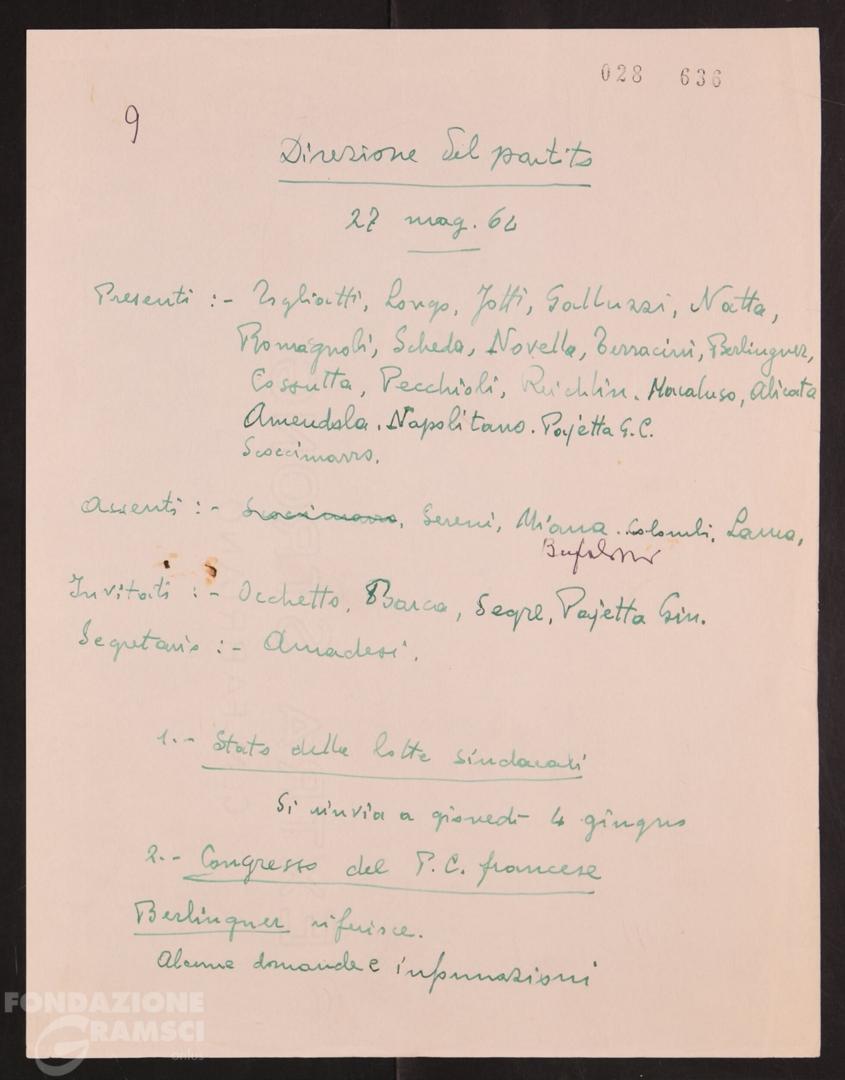 028 636
9
Direzione del partito
27 mag. 64
Presenti :- Togliatti, Longo, Jotti, Galluzzi, Natta,
Romagnoli, Scheda, Novella, Terracini, Berlinguer,
Cossutta, Pecchioli, Reichlin. Macaluso, Alicata
Amendola. Napolitano. Pajetta G.C.
Scoccimarro.
Assenti :- Scoccimarro, Sereni, Miana. Colombi, Lama,
Bufalini
Invitati :- Occhetto, Barca, Segre, Pajetta Giu.
Segretario :- Amadesi.
1.- Stato delle lotte sindacali
Si rinvia a giovedì 4 giugno
2.- Congresso del P.C. francese
Berlinguer riferisce.
Alcune domande e informazioni
FONDAZIONE
GRAMSCI
onlus